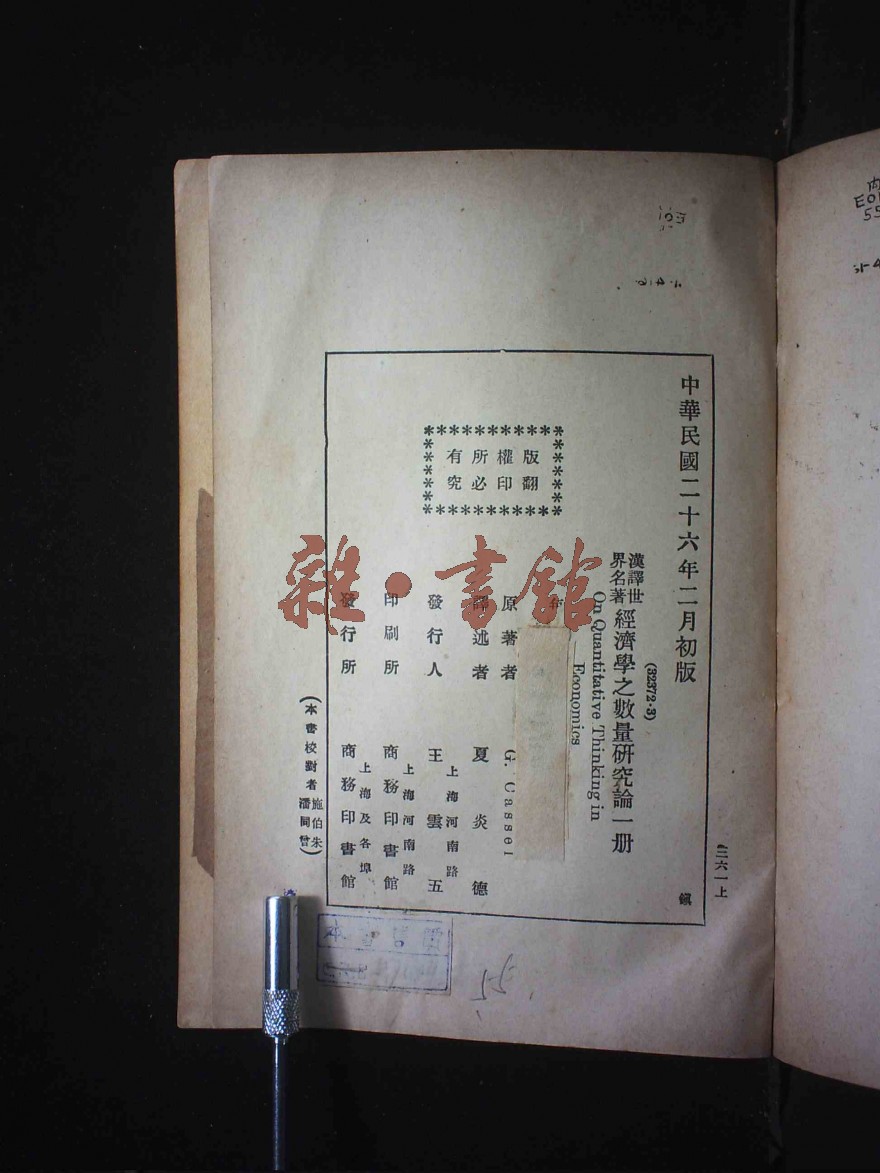 中華民國二十六年二月初版
二六一上
(32372·3)
漢譯世界名著
經濟學之數量研究論一册
On Quantitative Thinking in
Economics
版權所有
翻印必究
原著者 G. Cassel
譯述者 夏炎德
發行人 王雲五
上海河南路
印刷所 商務印書館
上海河南路
發行所 商務印書館
上海及各埠
(本書校對者 施伯朱 潘同曾)
雜·書館
55